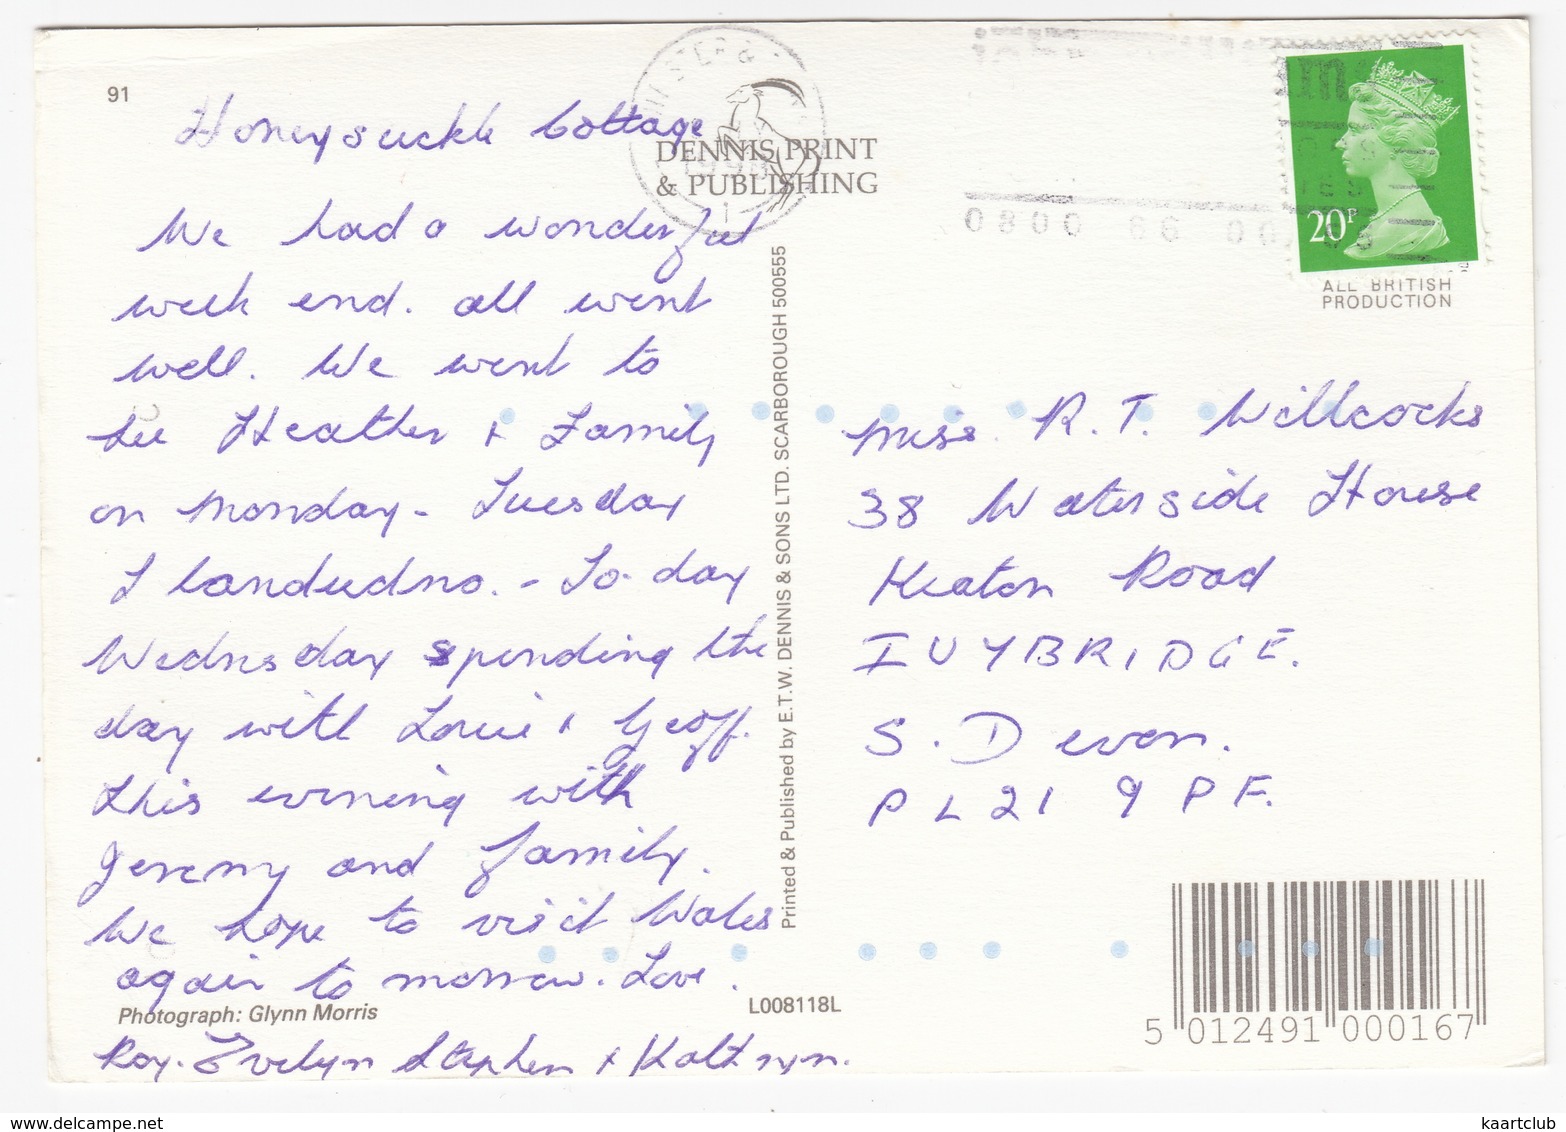 91
Honeysuckle Cottage
DENNIS PRINT
& PUBLISHING
We had a wonderful
week end. all went
well. We went to
see Heather + Family
on Monday - Tuesday
Llandudno. - To-day
Wednesday spending the
day with Louie + Geoff.
this evening with
Jeremy and family.
We hope to visit Wales
again to morrow. Love.
Photograph: Glynn Morris
Roy. Evelyn Stephen + Kathryn.
Printed & Published by E.T.W. DENNIS & SONS LTD. SCARBOROUGH 500555
L008118L
0800 66 00
20P
ALL BRITISH
PRODUCTION
Miss. R. T. Willcocks
38 Waterside House
Keaton Road
IVYBRIDGE.
S. Devon.
PL21 9PF.
5 012491 000167
kaartclub